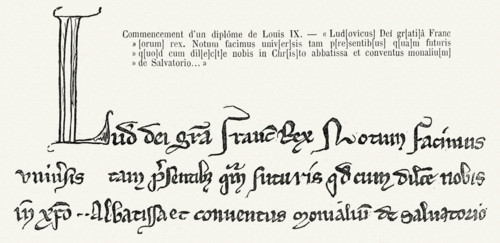 Commencement d'un diplôme de Louis IX. — « Lud[ovicus] Dei gr[ati]â Franc
» [orum] rex. Notum facimus univ[er]sis tam p[re]sentib[us] q[ua]m futuris
» q[uo]d cum dil[e]c[t]e nobis in Chr[is]to abbatissa et conventus monaliu[m]
» de Salvatorio... »
Lud dei gra Franc Rex Notum facimus
univsis tam psentib qm futuris qd cum dilce nobis
in xpo -- Abbatissa et conventus monialiu de Salvatorio